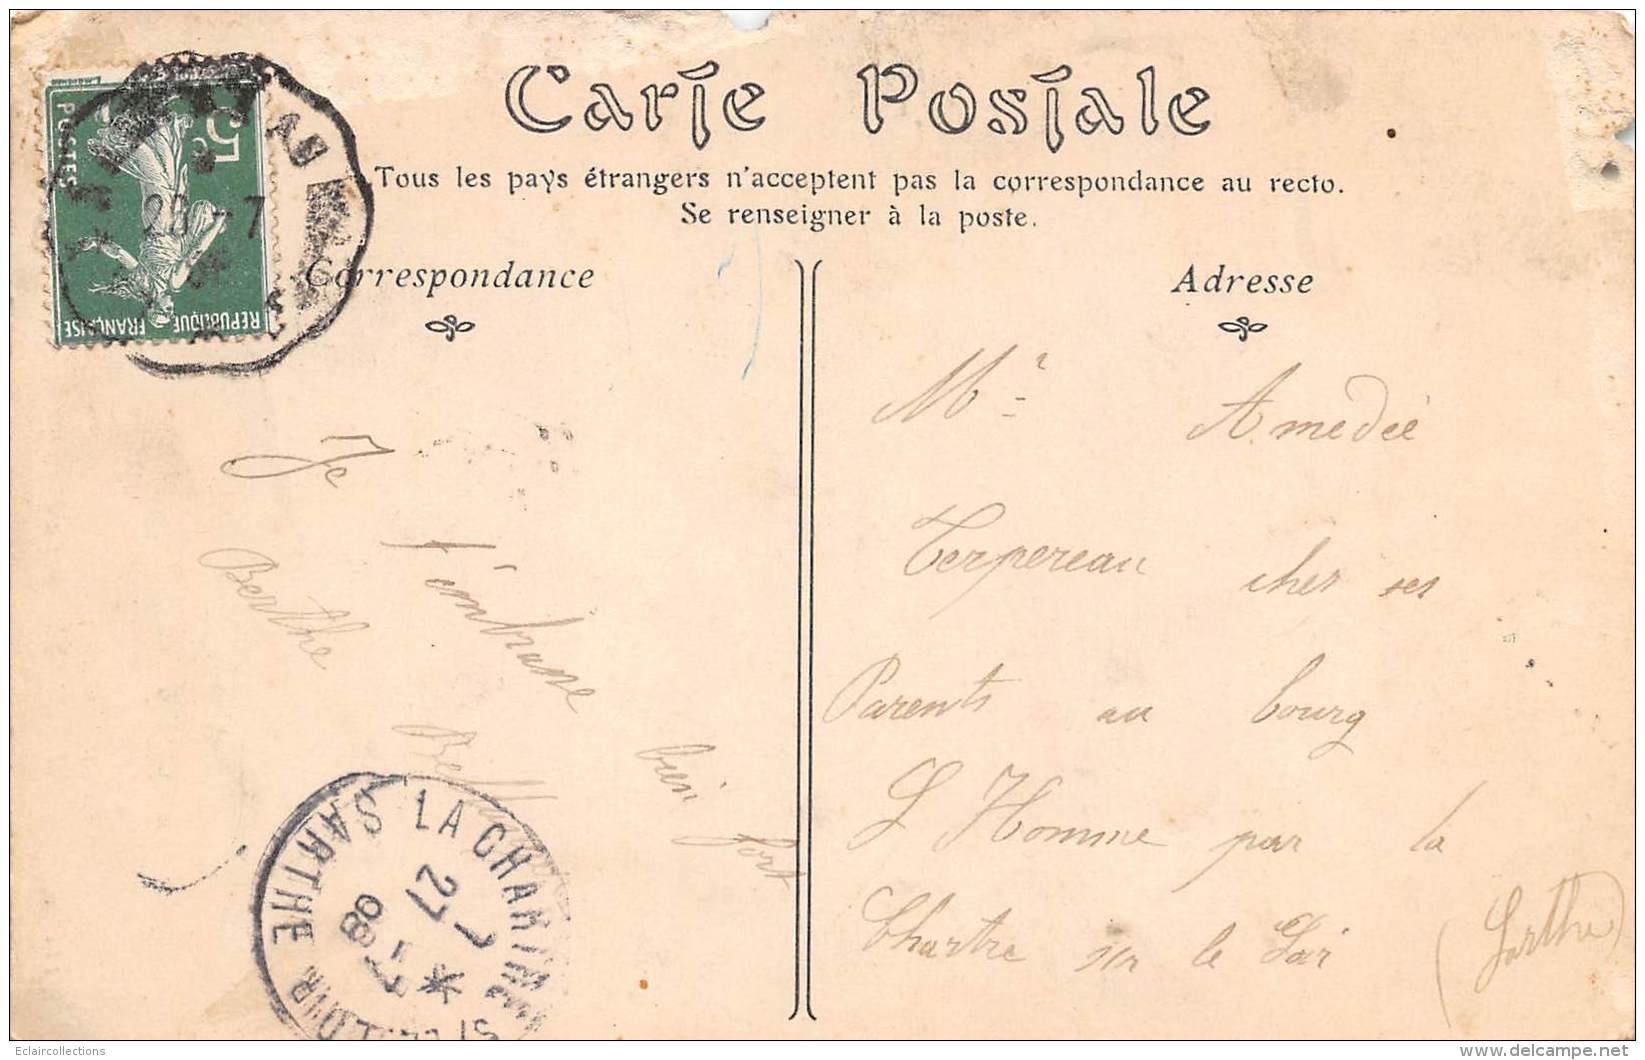 Carte Postale
Tous les pays étrangers n'acceptent pas la correspondance au recto.
Se renseigner à la poste.
Correspondance
Adresse
5c
POSTES
REPUBLIQUE
FRANÇAISE
28 - 7
Je
t'embrasse
bien
fort
Berthe
LA CHARTRE
SARTHE
27 - 7
08
Mr Amédée
Terpereau chez ses
Parents au bourg
L Homme par la
Chartre sur le Loir (Sarthe)
Eclaircollections
delcampe.net